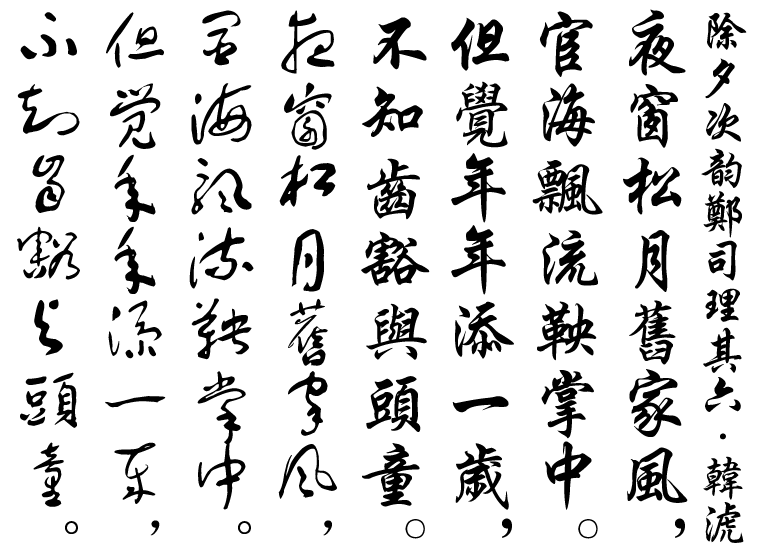 除夕次韵鄭司理其六·韓淲
夜窗松月舊家風，
官海飄流鞅掌中。
但覺年年添一歲，
不知齒豁與頭童。
夜窗松月舊家風，
官海飄流鞅掌中。
但覺年年添一歲，
不知齒豁與頭童。